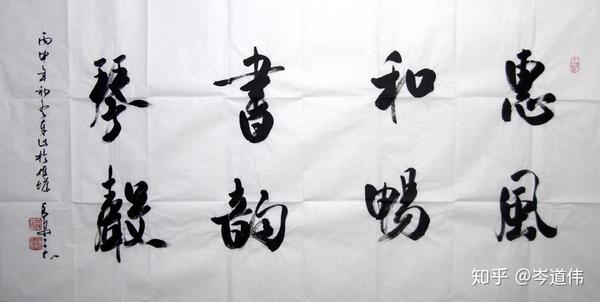 惠風
和暢
書韵
琴聲
丙申年初冬
知乎 @岑道伟